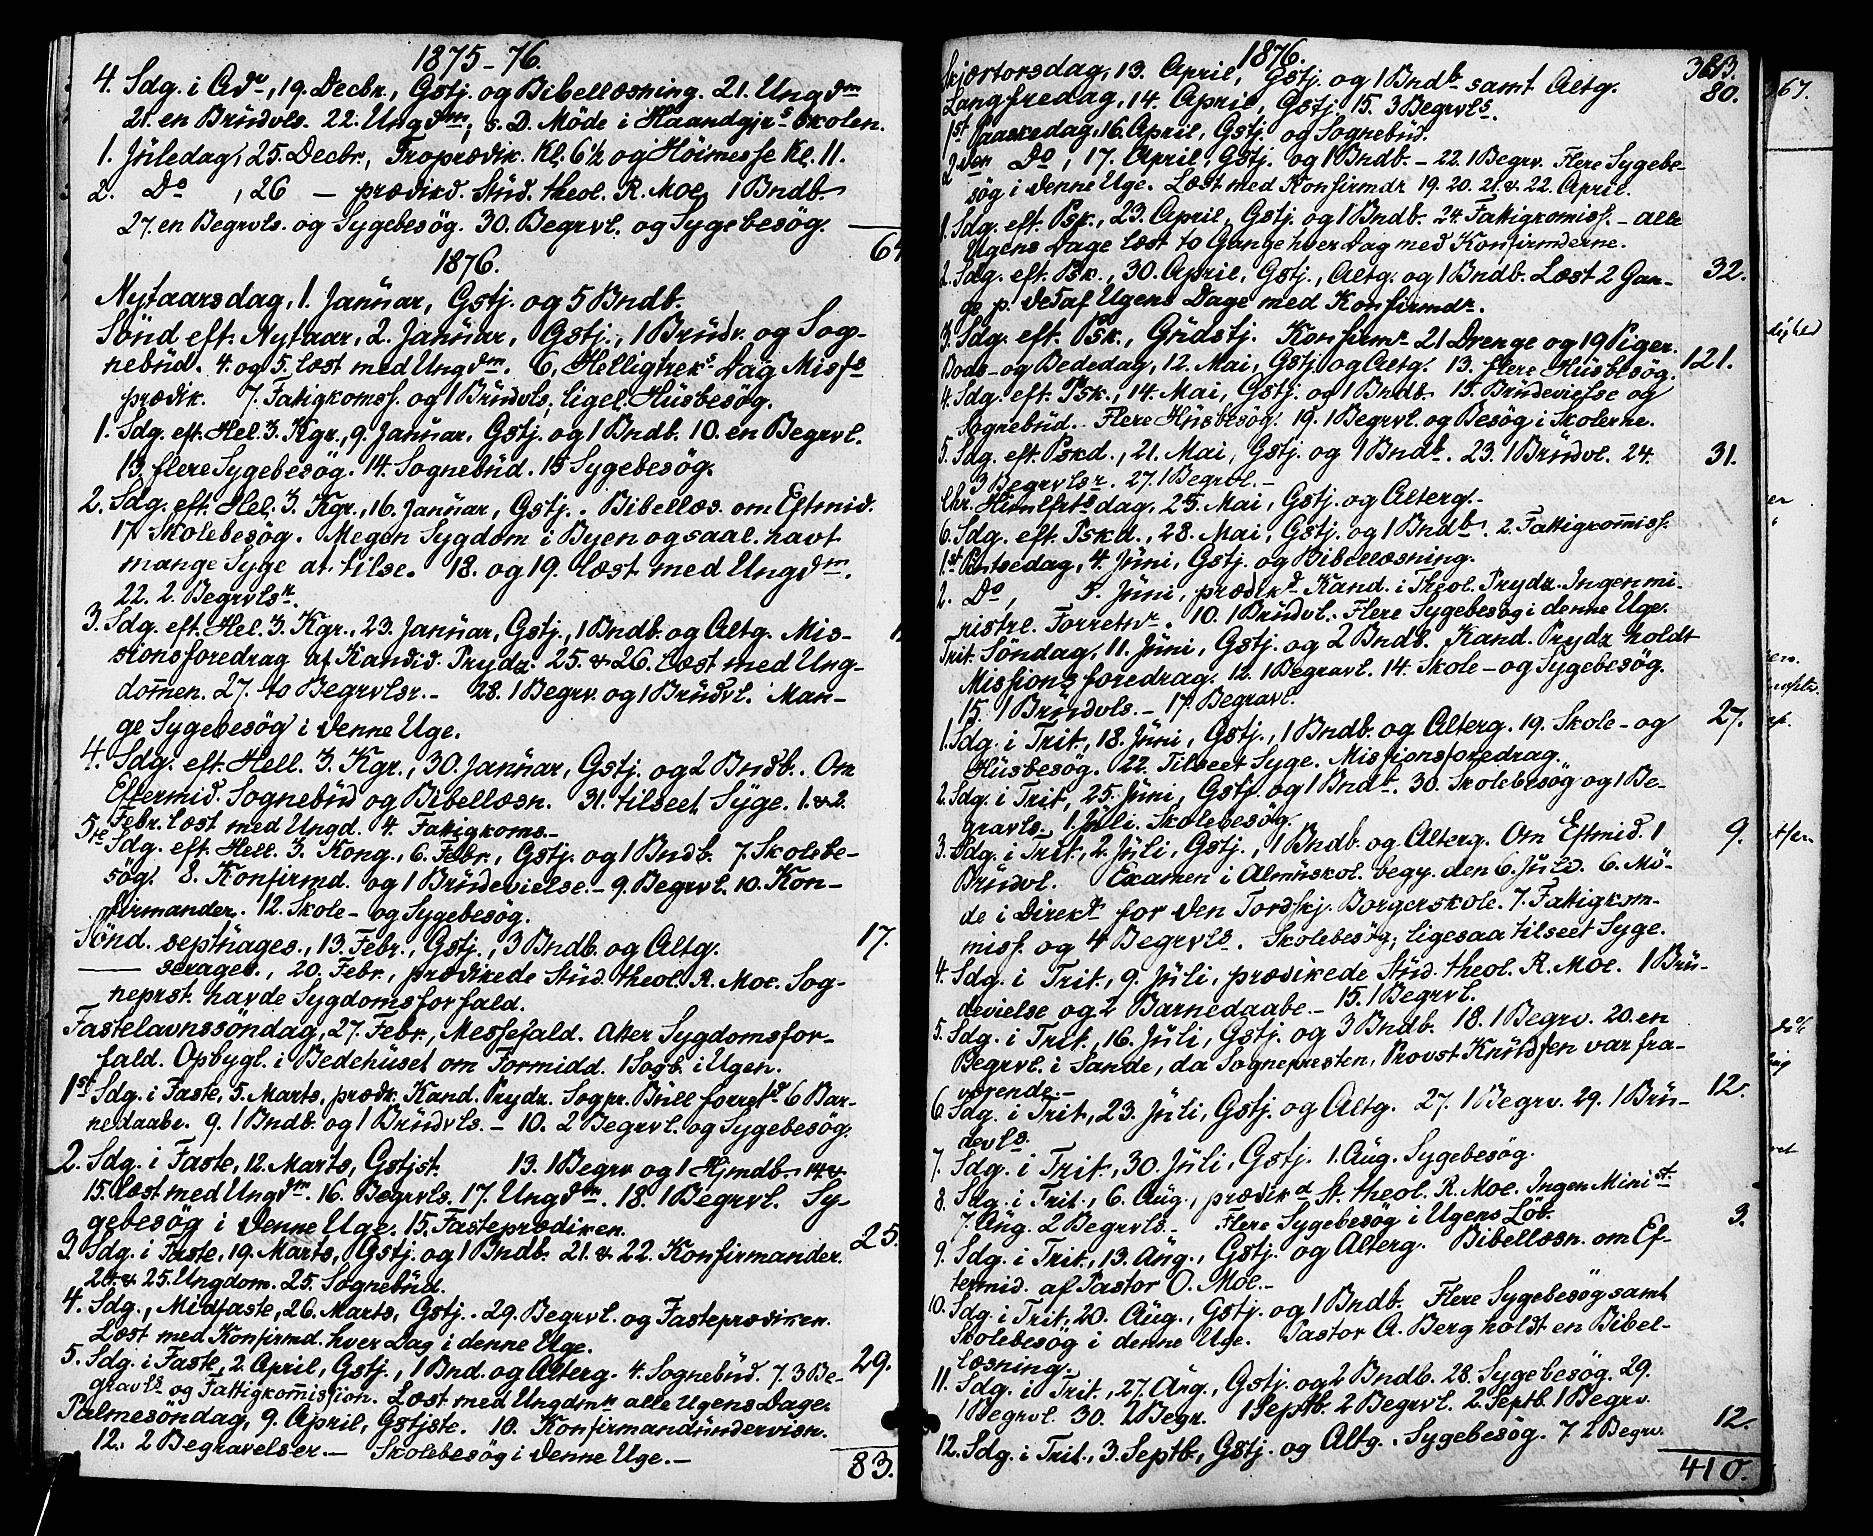 1875-76.
4. Sdg. i Adv, 19. Decbr., Gstj. og Bibellæsning. 21. Ungdm
21. en Brüdvls. 22. Ungdm, s. D. Möde i Haandgjrs Skolen.
1. Jüledag, 25. Decbr., Froprædik. Kl. 6½ og Höimesse Kl. 11.
2. Do, 26 — prædikd. Stüd. theol. R. Moe, 1 Bndb.
27. en Begrvls. og Sygebesög. 30. Begrvl. og Sygebesög.
1876.
Nytaarsdag, 1. Januar, Gstj. og 5 Bndb.
Sönd eft. Nytaar, 2. Januar, Gstj., 1 Brüdv. og Sog-
nebüd. 4. og 5. læst med Ungdm. 6. Helligtreks Dag Misfs
prædik. 7. Fattigkomss. og 1 Brüdvls, ligel. Hüsbesög.
1. Sdg. eft. Hel. 3. Kgr., 9. Januar, Gstj. og 1 Bndb. 10. en Begrvl.
13. flere Sygebesög. 14. Sognebüd. 15 Sygebesög.
2. Sdg. eft. Hel. 3. Kgr., 16. Januar, Gstj. Bibellæs. om Eftmid.
17 Skolebesög. Megen Sygdom i Byen og saal. havt
mange Syge at tilse. 18. og 19. læst med Ungdm.
22. 2. Begrvlsr.
3. Sdg. eft. Hel. 3. Kgr., 23. Januar, Gstj., 1 Bndb. og Altg. Mis-
sionsforedrag af Kandid. Prydz. 25. & 26. læst med Ung-
domen. 27. to Begrvlsr. - 28. 1 Begrv. og 1 Brüdvl. Man-
ge Sygebesög i denne Uge.
4. Sdg. eft. Hell. 3. Kgr., 30. Januar, Gstj. og 2 Bndb. Om
Eftermid. Sognebüd og Bibellæsn. 31. tilseet Syge. 1. & 2.
Febr. læst med Ungd. 4. Fattigkoms.-
5te Sdg. eft. Hell. 3. Kong., 6. Febr., Gstj. og 1 Bndb. 7. Skolebe-
sög. 8. Konfirmd. og 1 Brüdevielse.- 9. Begrvl. 10. Kon-
firmander. 12. Skole- og Sygebesög.
Sönd. septuages., 13. Febr., Gstj., 3 Bndb. og Altg. 17.
— sexages., 20. Febr., prædikede Stüd. theol. R. Moe. Sog-
neprst. havde Sygdomsforfald.
Fastelavnssöndag, 27. Febr., Messefald. Atter Sygdomsfor-
fald. Opbygl. i Bedehüset om Formidd. 1 Sogb. i Ugen.
1st Sdg. i Faste, 5. Marts, prædk. Kand. Prydz. Sogpr. Büll forretd 6 Bar-
nedaabe. 9. 1 Bndb. og 1 Brüdvls. - 10. 2 Begrvl. og Sygebesög.
2. Sdg. i Faste, 12. Marts, Gstjst. 13. 1 Begrv og 1 Hjmdb. 14 &
15. læst med Ungdm. 16. Begrvls. 17. Ungdm. 18. 1 Begrvl. Sy-
gebesög i denne Uge. 15. Fasteprædiken. 25.
3. Sdg. i Faste, 19. Marts, Gstj. og 1 Bndb. 21. & 22. Konfirmander.
24. & 25. Ungdom. 25. Sognebüd.
4. Sdg., Midfaste, 26. Marts, Gstj.. 29. Begrvl. og Fasteprædiken.
Læst med Konfirmd. hver Dag i denne Uge.
5. Sdg. i Faste, 2. April, Gstj., 1 Bnd. og Alterg. 4. Sognebüd. 7. 3 Be- 29.
gravls og Fattigkommission. Læst med Ungdmn alle Ugens Dage.
Palmesöndag, 9. April, Gstjste. 10. Konfirmandündervisn.
12. 2 Begravelser.- Skolebesög i denne Uge.-
83.
1876.
383.
Skjærtorsdag, 13. April, Gstj. og 1 Bndb samt Altg. 80.
Langfredag, 14. April, Gstj. 15. 3 Begrvls.
1st Paaskedag, 16. April, Gstj. og Sognebüd.
2den Do, 17. April, Gstj. og 1 Bndb. - 22. 1 Begrv. Flere Sygebe-
søg i denne Uge. Læst med Konfirmdr 19. 20. 21. & 22. April.
1. Sdg. eft. Psk., 23. April, Gstj. og 1 Bndb. 24. Fattigkomiss. - alle
Ugens Dage læst to Gange hver Dag med Konfirmderne.
2. Sdg. eft. Psk., 30. April, Gstj., Altg. og 1 Bndb. Læst 2 Gan- 32.
ge p. Det af Ugens Dage med Konfirmdr.
3. Sdg. eft. Psk., Gudstj. Konfirmr. 21 Drenge og 19 Piger.
Bods- og Bededag, 12. Mai, Gstj. og Altg. 13. flere Hüsbesög. 121.
4. Sdg. eft. Psk., 14. Mai, Gstj. og 1 Bndb. 15. Brüdevielse og
Sognebüd. Flere Hüsbesög. 19. 1 Begrvl. og Besög i Skolerne.
5. Sdg. eft. Pskd., 21. Mai, Gstj. og 1 Bndb. 23. 1 Brüdvl. 24. 31.
3 Begrvlsr. 27. 1 Begrbl.-
Chr. Himlfrtsdag, 25. Mai, Gstj. og Alterg.-
6. Sdg. eft. Pskd., 28. Mai, Gstj. og 1 Bndb. 2. Fattigkommiss.
1st Pintsedag, 4. Jüni, Gstj. og Bibellæsning.
2. Do, 5. Jüni, prædikd Kand. i Theol. Prydz. Ingen mi-
nistrl. Forretnr. 10. 1 Brüdvl. Flere Sygebesög i denne Uge.
Trit. Söndag, 11. Jüni, Gstj. og 2 Bndb. Kand. Prydz holdt
Missionsforedrag. 12. 1 Begravl. 14. Skole- og Sygebesög.
15. 1 Brüdvls.- 17. Begravl.
1. Sdg. i Trit., 18. Jüni, Gstj., 1 Bndb. og Alterg. 19. Skole- og 27.
Hüsbesög. 22. Tilseet Syge. Missionsforedrag.
2. Sdg. i Trit, 25. Jüni, Gstj. og 1 Bndb. 30. Skolebesög og 1 Be-
gravls- 1. Jüli. Skolebesög.
3. Sdg. i Trit, 2. Jüli, Gstj., 1 Bndb. og Alterg. Om Eftmid. 1 9.
Brüdvl. Examen i Almüskol. begy. den 6. Jüli. 6. Mö-
de i Direktr for den Tordskj. Borgerskole. 7. Fattigkom-
miss. og 4 Begrvls. Skolebesög, ligesaa tilseet Syge.
4. Sdg. i Trit., 9. Jüli, prædikede Stüd. theol. R. Moe. 1 Brü-
devielse og 2 Barnedaabe.- 15. 1 Begrvl.
5. Sdg. i Trit., 16. Jüli, Gstj. og 3 Bndb. 18. 1 Begrv. 20. en
Begrvl. i Sande, da Sognepresten, Provst Knüdsen var fra-
værende.-
6. Sdg. i Trit., 23. Jüli, Gstj. og Altg. 27. 1 Begrv. 29. 1 Brü- 12.
devls.
7. Sdg. i Trit., 30. Jüli, Gstj. 1. Aug. Sygebesög.
8. Sdg. i Trit., 6. Aug., prædikd St. theol. R. Moe. Ingen Minist.
7. Aug. 2 Begrvls.- Flere Sygebesög i Ugens Löb. 3.
9. Sdg. i Trit., 13. Aug., Gstj. og Alterg. Bibellæsn. om Ef-
termid. af Pastor O. Moe.-
10. Sdg. i Trit, 20. Aug., Gstj. og 1 Bndb. Flere Sygebesög samt
Skolebesög i denne Uge. Pastor A. Berg holdt en Bibel-
læsning.
11. Sdg. i Trit., 27. Aug., Gstj. og 2 Bndb. 28. Sygebesög. 29.
1 Begrvl. 30. 2 Begr. 1 Septb. 2 Begrvl. 2. Septb. 1 Begrv.
12. Sdg. i Trit., 3. Septb., Gstj. og Altg. Sygebesög. 7. 2 Begrv. 12.
410.